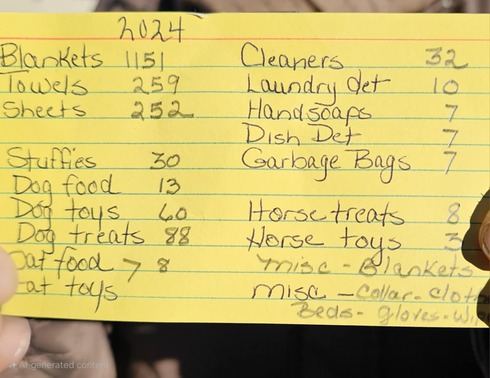 2024
Blankets 1151
Towels 259
Sheets 252
Stuffies 30
Dog food 13
Dog toys 60
Dog treats 88
Cat food > 8
Cat toys
Cleaners 32
Laundry det 10
Handsoaps 7
Dish Det 7
Garbage Bags 7
Horse treats 8
Horse toys 3
misc - Blankets
misc - Collar - clot
Beds - gloves - wip
AI-generated content